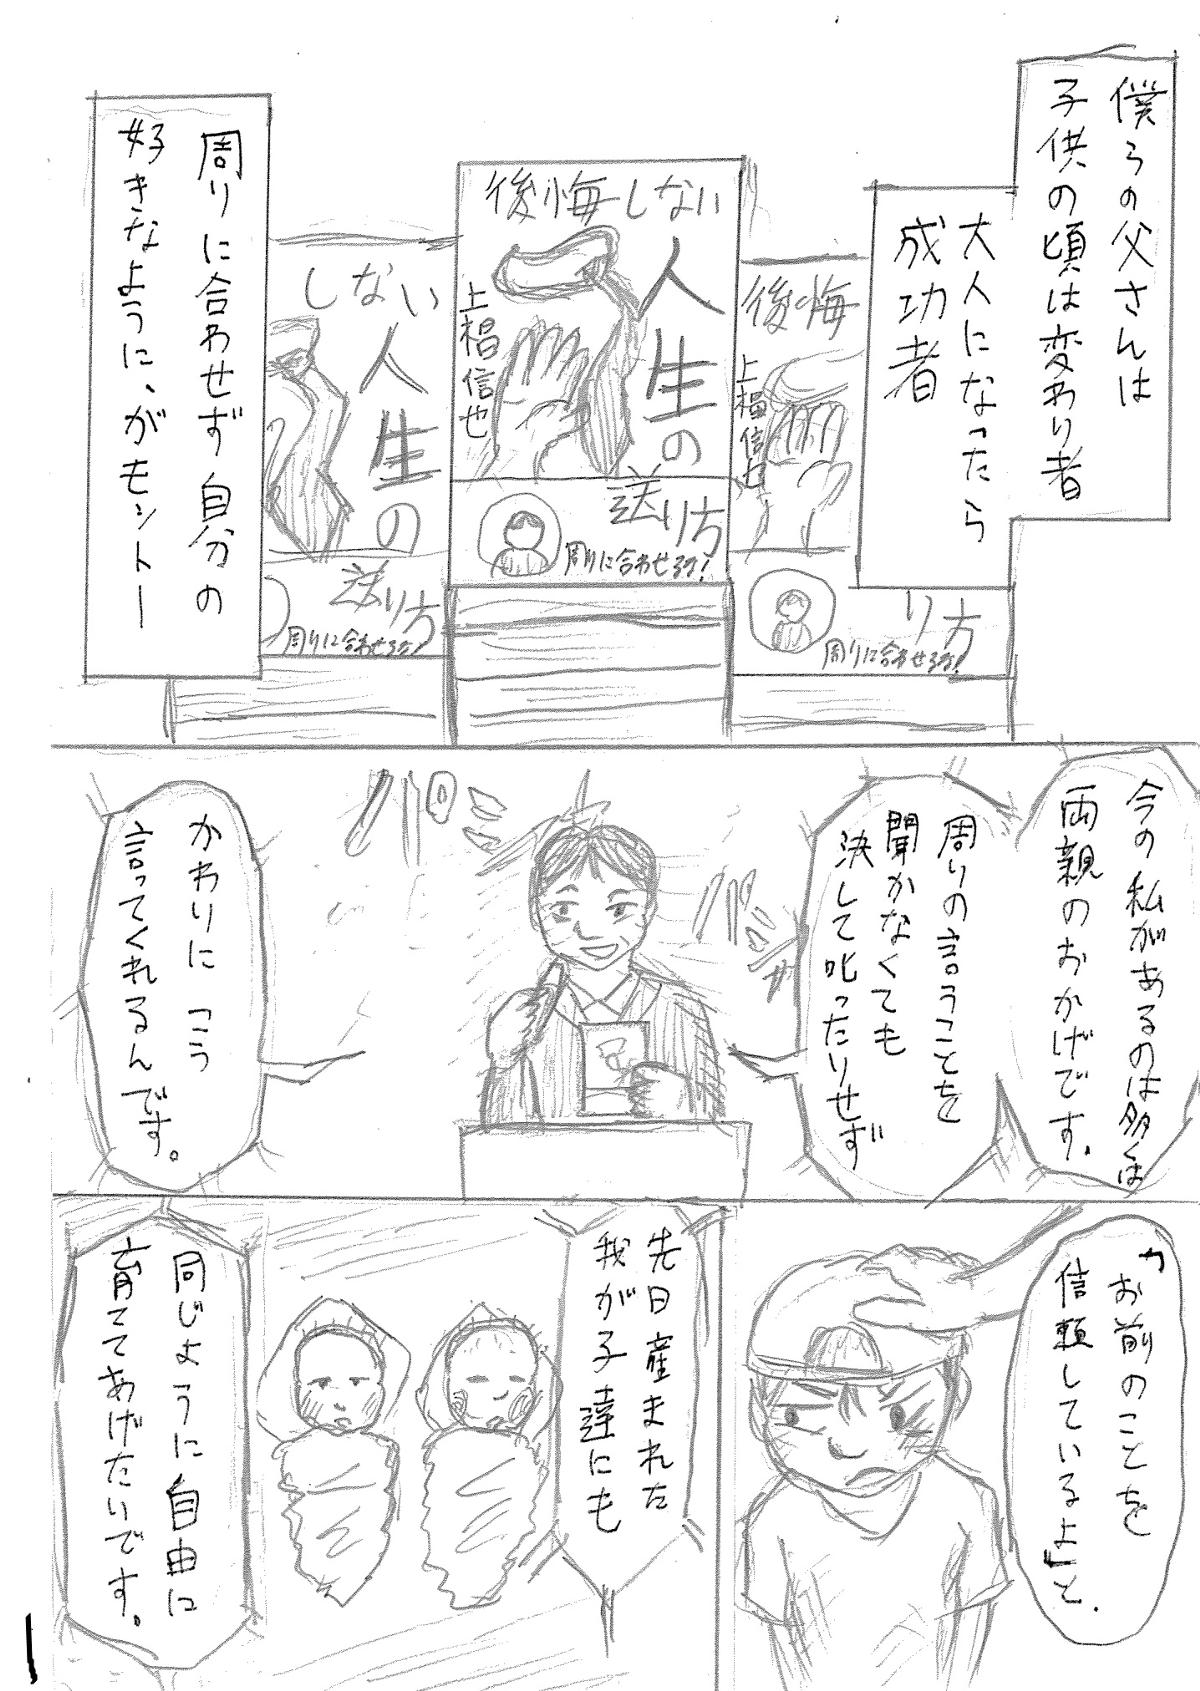 僕らの父さんは
子供の頃は変わり者
大人になったら
成功者
後悔
上椙信也
り方
周りに合わせるな!
後悔しない
人生の
送り方
上椙信也
周りに合わせるな!
しない
人生の
送り方
周りに合わせるな!
周りに合わせず自分の
好きなように、がモットー
今の私があるのは多くは
両親のおかげです。
周りの言うことを
聞かなくても
決して叱ったりせず
かわりにこう
言ってくれるんです。
「お前のことを
信頼しているよ」と.
先日産まれた
我が子達にも
同じように自由に
育ててあげたいです。
1